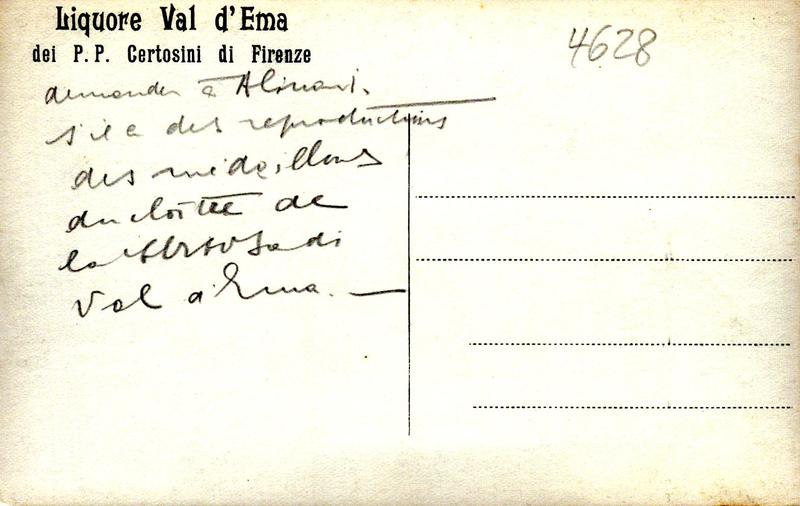 Liquore Val d'Ema
dei P.P. Certosini di Firenze
4628
demander à Alinari
s'il a des reproductions
des médaillons
du cloître de
la Certosa di
Val d'Ema. —